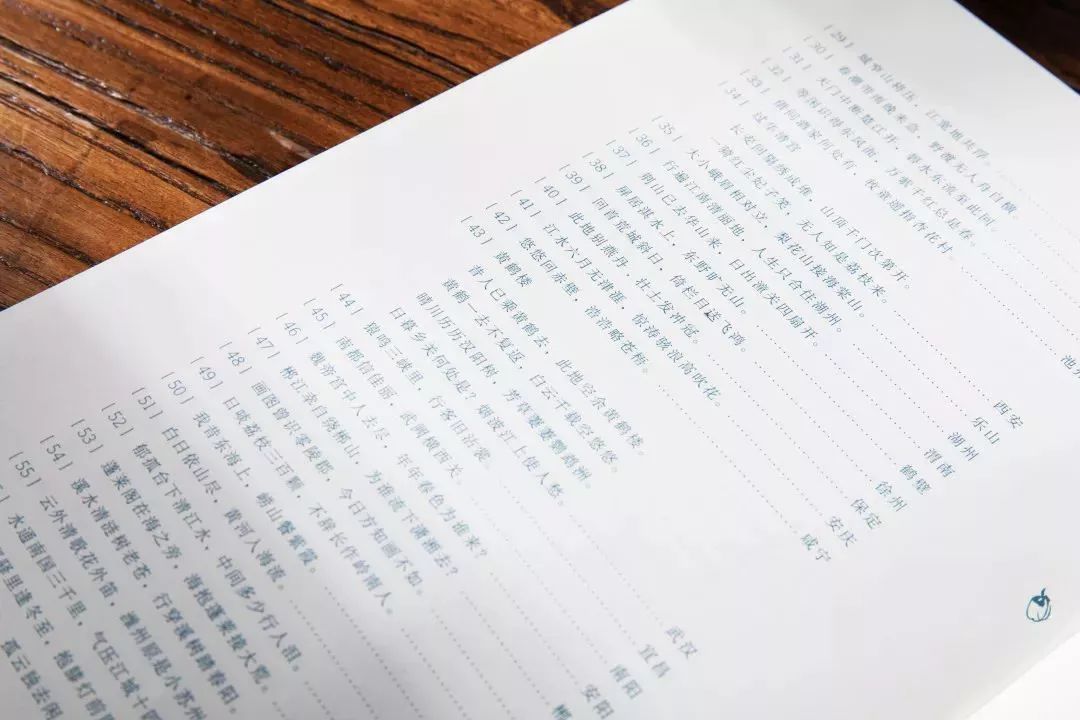 [29] 城窄山将压，江宽地共浮。
[30] 春潮带雨晚来急，野渡无人舟自横。
[31] 天门中断楚江开，碧水东流至此回。
[32] 等闲识得东风面，万紫千红总是春。
[33] 借问酒家何处有，牧童遥指杏花村。 池州
[34] 过华清宫
长安回望绣成堆，山顶千门次第开。
一骑红尘妃子笑，无人知是荔枝来。 西安
[35] 大小峨眉相对立，梨花山接海棠山。 乐山
[36] 行遍江南清丽地，人生只合住湖州。 湖州
[37] 荆山已去华山来，日出潼关四扇开。 渭南
[38] 屏居淇水上，东野旷无山。 鹤壁
[39] 回首荒城斜日，倚栏目送飞鸿。 徐州
[40] 此地别燕丹，壮士发冲冠。 保定
[41] 江水六月无津涯，惊涛骇浪高吹花。 安庆
[42] 悠悠回赤壁，浩浩略苍梧。 咸宁
[43] 黄鹤楼
昔人已乘黄鹤去，此地空余黄鹤楼。
黄鹤一去不复返，白云千载空悠悠。
晴川历历汉阳树，芳草萋萋鹦鹉洲。
日暮乡关何处是？烟波江上使人愁。 武汉
[44] 猿鸣三峡里，行客旧沾裳。 宜昌
[45] 南都信佳丽，武阙横西关。 南阳
[46] 魏帝宫中人去尽，年年春色为谁来？ 安阳
[47] 郴江幸自绕郴山，为谁流下潇湘去？ 郴
[48] 画图曾识零陵郡，今日方知画不如。
[49] 日啖荔枝三百颗，不辞长作岭南人。
[50] 我昔东海上，崂山餐紫霞。
[51] 白日依山尽，黄河入海流。
[52] 郁孤台下清江水，中间多少行人泪。
[53] 蓬莱阁在海之旁，海抱蓬莱接大荒。
[54] 溪水清涟树老苍，行穿溪树踏春阳。
[55] 云外清歌花外笛，潍州原是小苏州
水通南国三千里，气压江城十四
里逢冬至，抱膝灯前
孤云独去闲